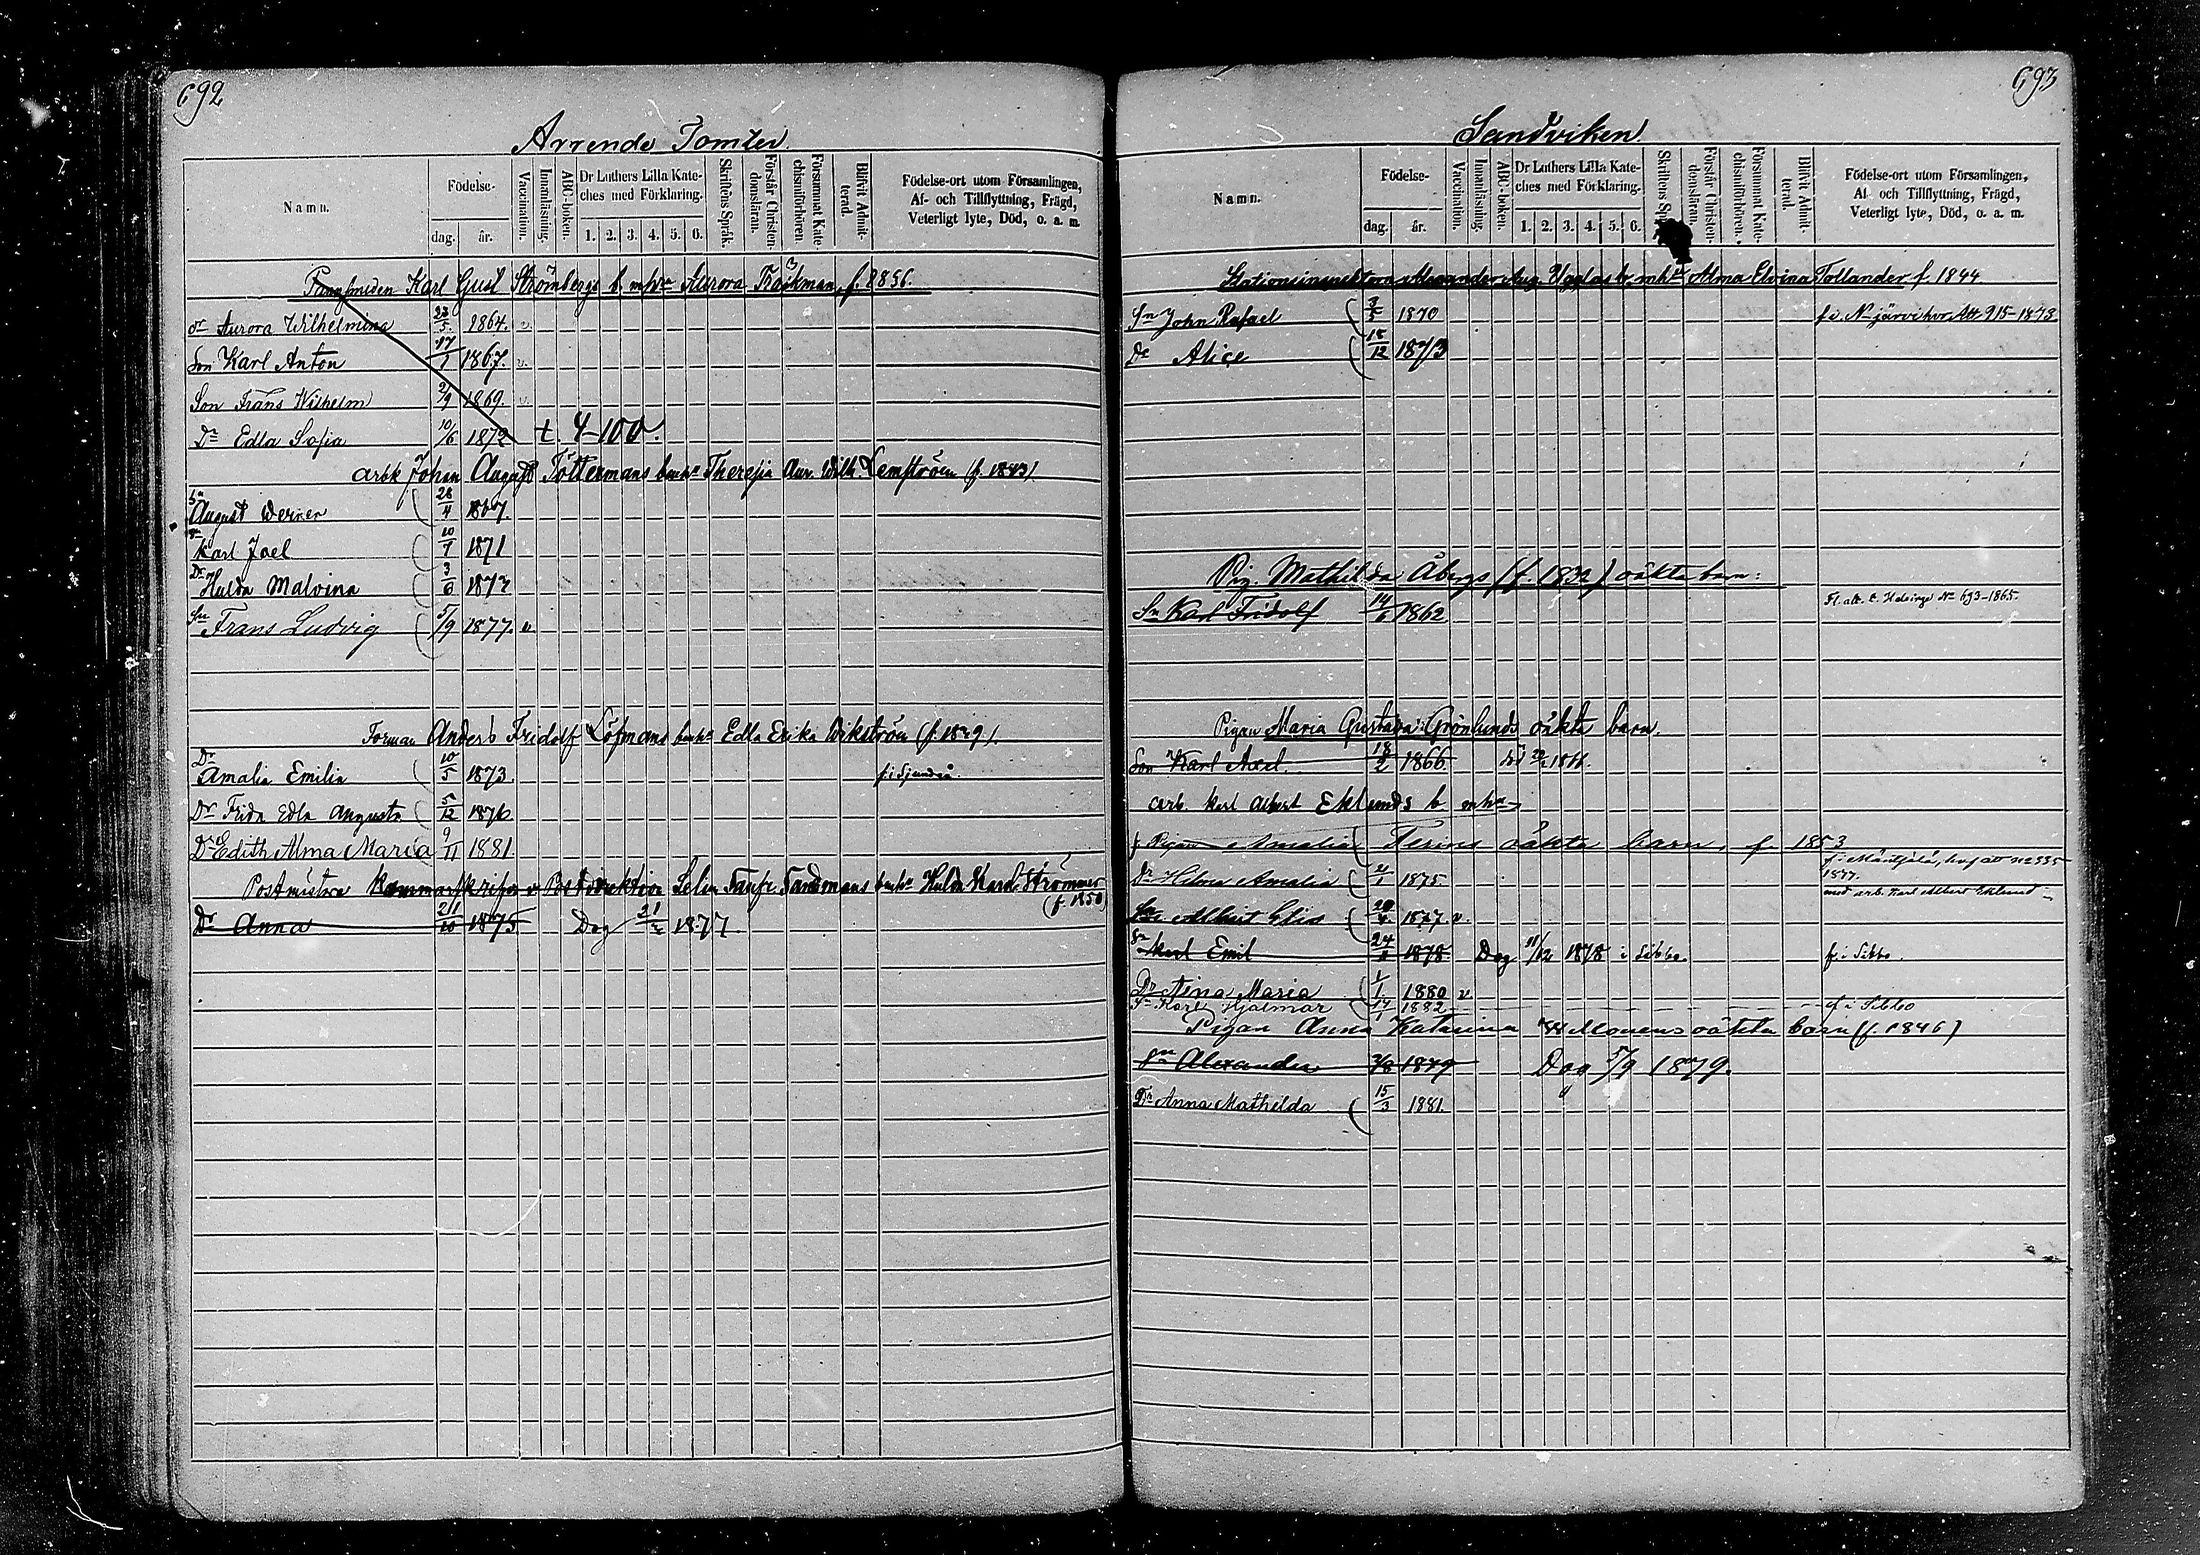 692
Arrende Tomter.
Namn.
Födelse-
dag. år.
Vaccination.
Innanläsning.
ABC-boken.
Dr Luthers Lilla Kate-
ches med Förklaring.
1. 2. 3. 4. 5. 6.
Skriftens Språk.
Förstår Christen-
domsläran.
Försummat Kate-
chismiförhören.
Blifvit Admit-
terad.
Födelse-ort utom Församlingen,
Af- och Tillflyttning, Frägd,
Veterligt lyte, Död, o. a. m.
Karl Gust Strömbergs b. mhu Aurora Träskman, f. 1836.
dr Aurora Wilhelmina 23/5. 1864. v.
Son Karl Anton 17/1 1867. v.
Son Frans Wilhelm 2/9 1869. v.
Dr Edla Sofia 10/6 1872 t. 4-100.
Arbk Johan August Töttermans bmhu Theresia Aur. Wilh. Lemström (f. 1843).
Sn August Werner 28/4 1867.
Sn Karl Joel 10/7 1871
Dr Hulda Malvina 3/6 1872
Sn Frans Ludvig 5/9 1877. v
Forman Anders Fridolf Löfmans bmhu Edla Erika Wikström (f. 1849).
Dr Amalia Emilia 10/5 1873. f. i Sjundeå.
Dr Frida Edla Augusta 5/12 1876
Dr Edith Alma Maria 9/11 1881
Postmästare Sandmans bmhu Hulda Karol. Strömmer
(f. 1850)
Dr Anna 21/10 1875 Dog 21/2 1877.
693
Sandviken.
Namn.
Födelse-
dag. år.
Vaccination.
Innanläsning.
ABC-boken.
Dr Luthers Lilla Kate-
ches med Förklaring.
1. 2. 3. 4. 5. 6.
Skriftens
Förstår Christen-
domsläran.
Försummat Kate-
chismiförhören.
Blifvit Admit-
terad.
Födelse-ort utom Församlingen,
Af- och Tillflyttning, Frägd,
Veterligt lyte, Död, o. a. m.
Stationsinspektorn Alexander Aug. Ugglas b. mhu Alma Elvina Tollander f. 1844.
Sn John Rafael 1870 f. i N-järvi hvr Att 915-1873
Dr Alice 18/12 1873
Pig. Mathilda Åbergs (f. 1832) oäkta barn:
Sn Karl Fridolf 14/6 1862 Fl. att. t. Helsinge No 693-1865.
Pigan Maria Gustava Grönlunds oäkta barn.
Son Karl Axel. 18/2 1866
Arb. Karl Albert Eklunds b. mhu
f. Pigan Amalia oäkta barn. f 1853
Dr Hilma Amalia 2/1 1875. f. i Mäntsälä, hvf att n 2335
1877.
med arb. Karl Albert Eklund
Sn Albert Elis 1877. v.
Sn Karl Emil 1878 Dog 11/12 1878 i Sibbo. f. i Sibbo.
Dr Nina Maria 1/1 1880 v
Sn Karl Hjalmar 17/1 1882 f i Sibbo
Pigan Anna Katarina oäkta barn (f. 1846)
Sn Alexander 1879 Dog 5/9 1879.
Dr Anna Mathilda 15/3 1881.